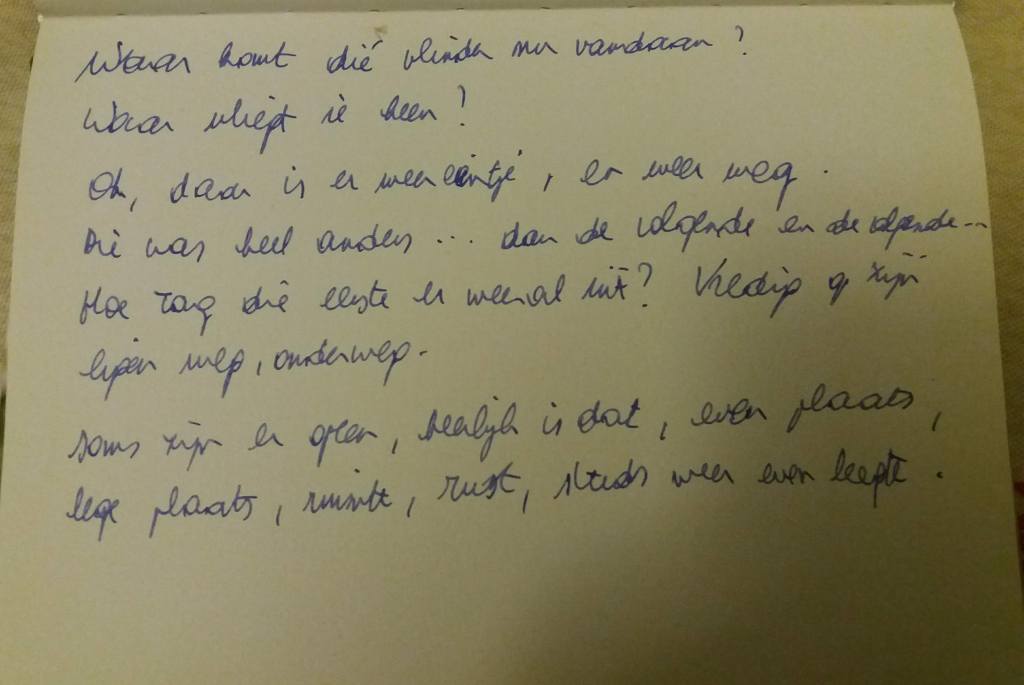 Waar komt dié vlinder nu vandaan?
Waar vliegt ie heen?
Oh, daar is er weer eéntje, en weer weg.
Die was heel anders... dan de volgende en de volgende...
Hoe zag die eerste er weeral uit? Vredig op zijn
eigen weg, onderweg.
Soms zijn er geen, heerlijk is dat, even plaats,
lege plaats, ruimte, rust, steeds weer even leegte.